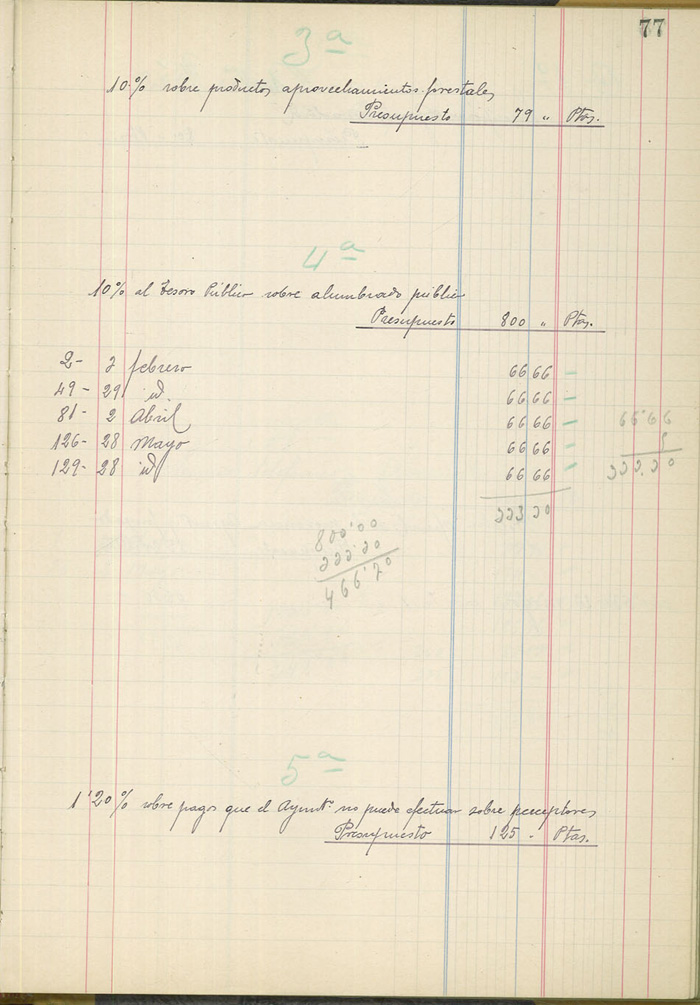 77
3ª
10 % sobre productos aprovechamientos forestales
Presupuesto 79 " Ptas.
4ª
10% al Tesoro Público sobre alumbrado público
Presupuesto 800 " Ptas.
2- 2 febrero 66 66 -
49- 29 id. 66 66 -
81- 2 Abril 66 66 - 66'66
126- 28 Mayo 66 66 - 5
129- 28 id 66 66 - 333,30
333 30
800'00
333'30
466'70
5ª
1'20 % sobre pagos que el Ayuntº no puede efectuar sobre perceptores
Presupuesto 125 - Ptas.